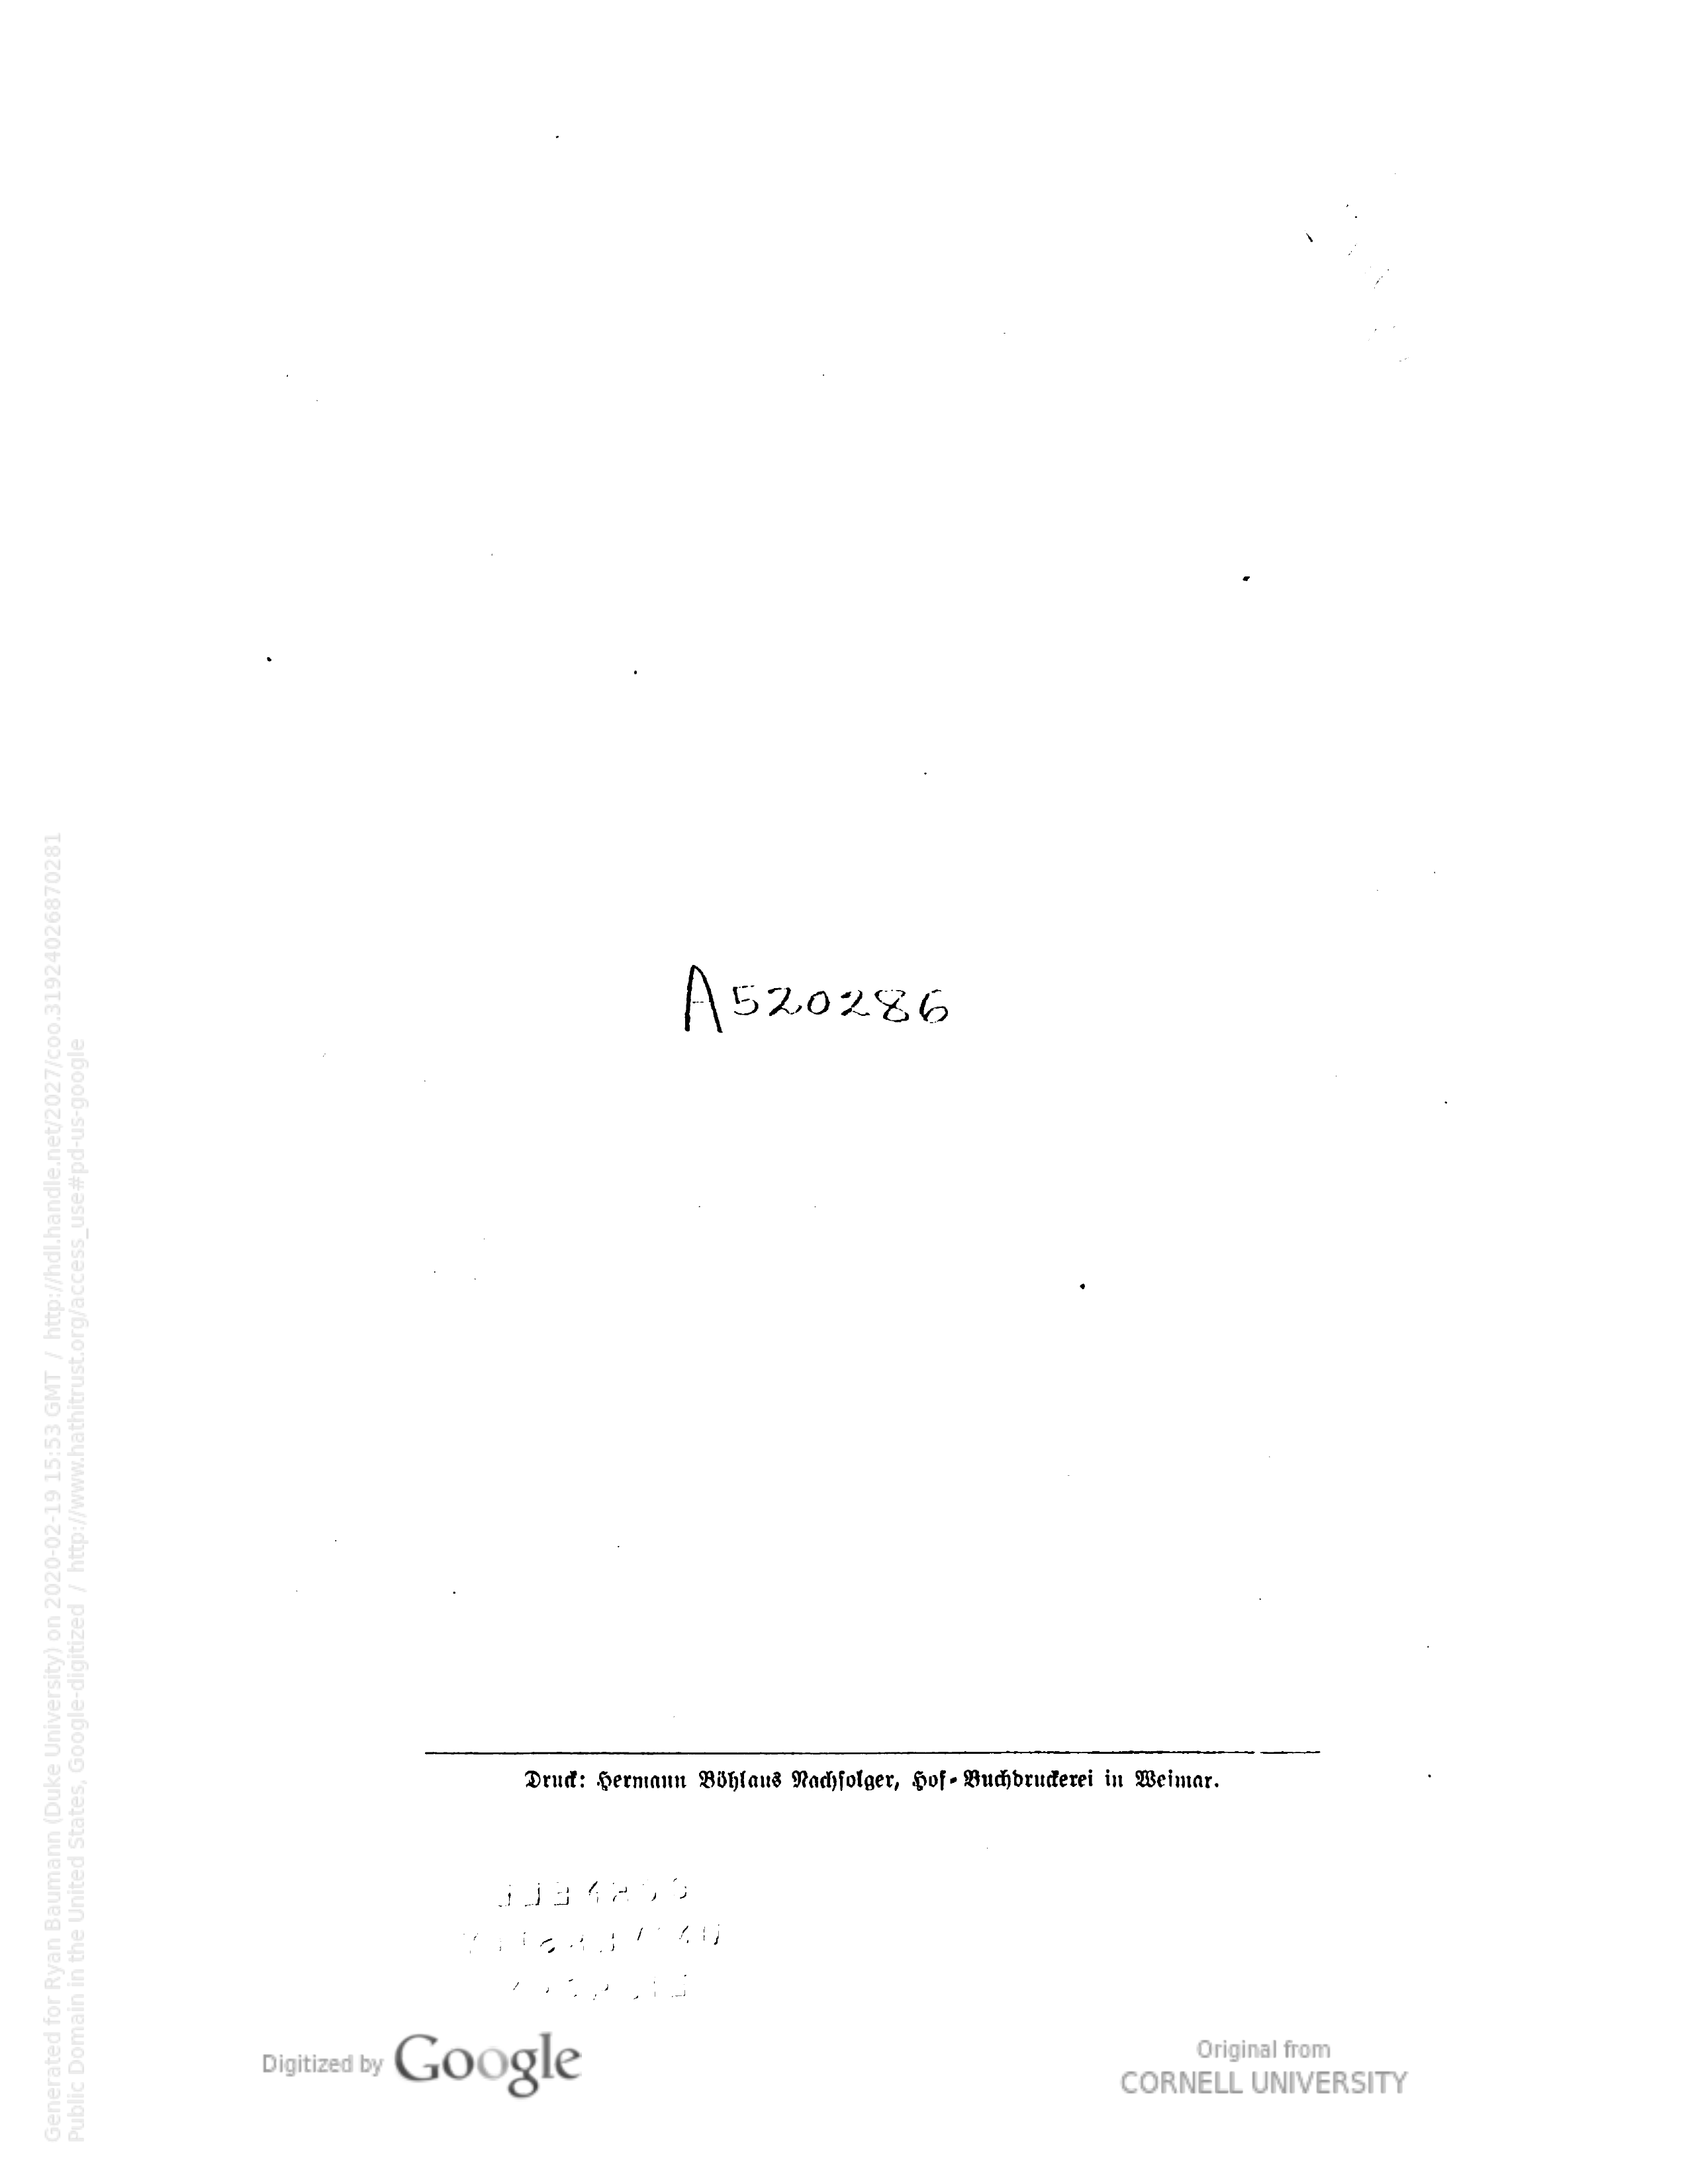 A520286
Druck: Hermann Böhlaus Nachfolger, Hof-Buchdruckerei in Weimar.
CORNELL
UNIVERSITY
LIBRARY
Digitized by Google
Original from
CORNELL UNIVERSITY
Generated for Ryan Baumann (Duke University) on 2020-02-19 15:53 GMT / http://hdl.handle.net/2027/coo.31924026870281
Public Domain in the United States, Google-digitized / http://www.hathitrust.org/access_use#pd-us-google